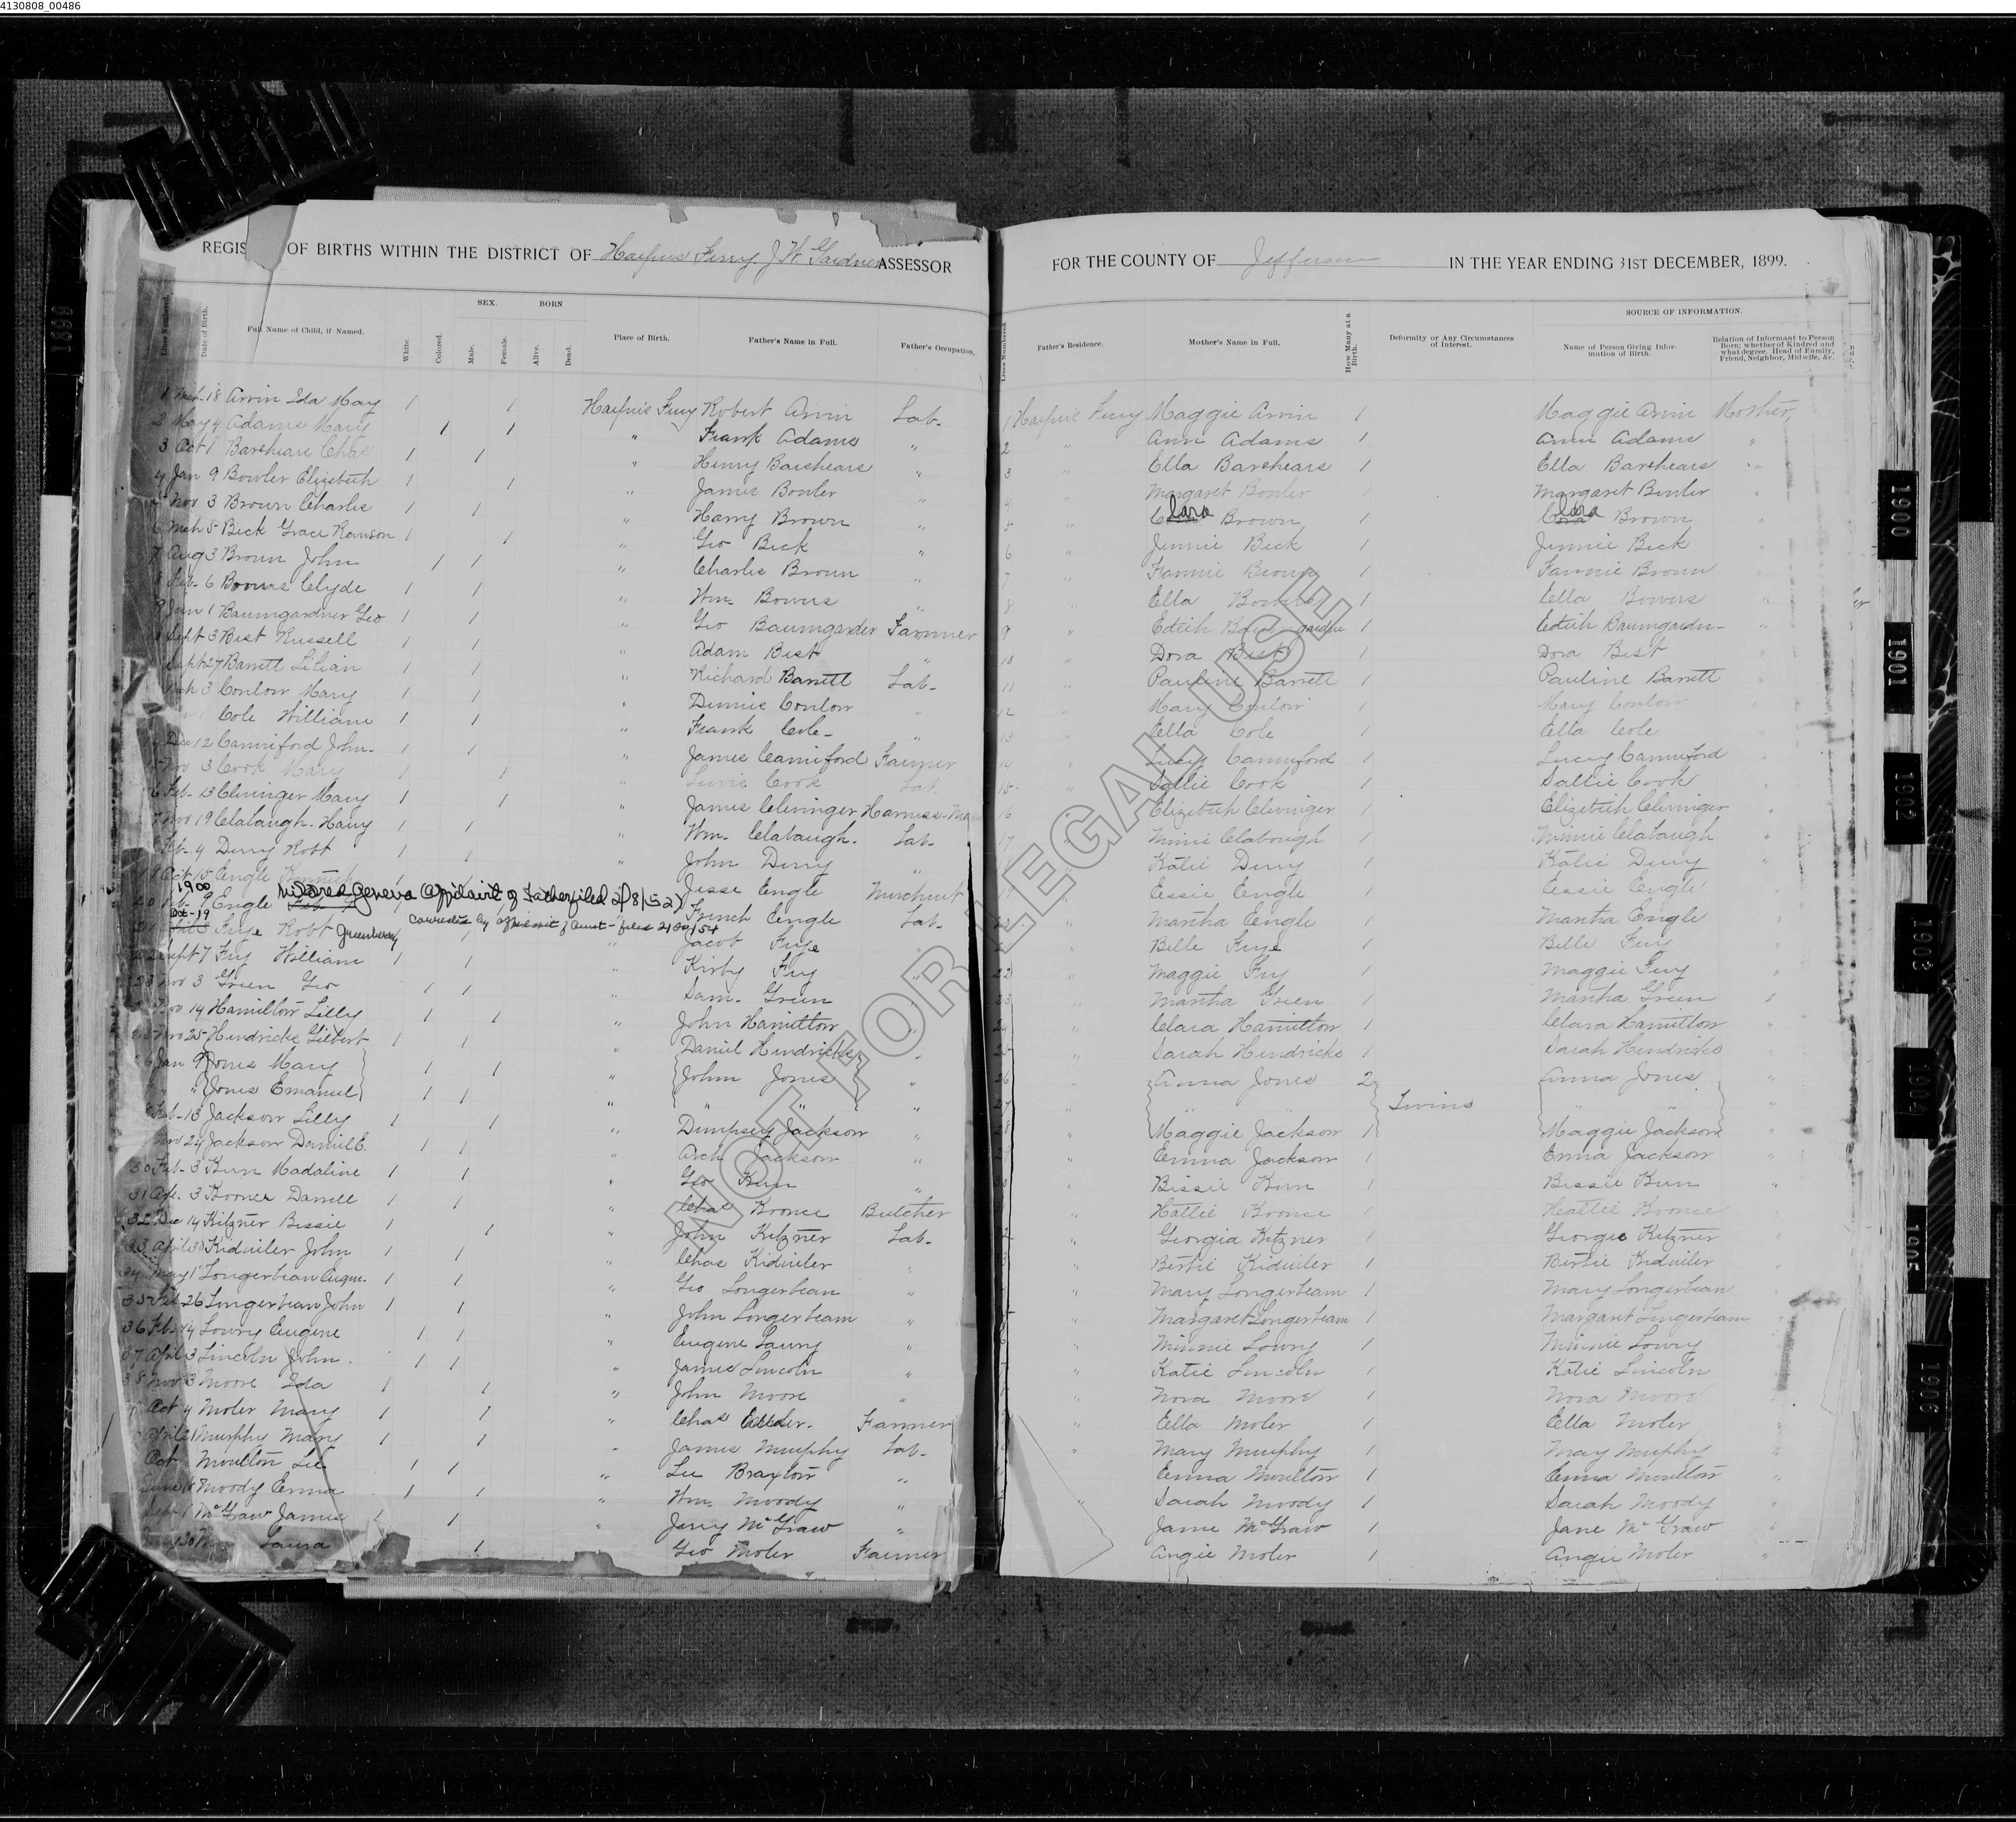 4130808_00486
REGIS OF BIRTHS WITHIN THE DISTRICT OF Harpers Ferry. J W Gardner ASSESSOR
FOR THE COUNTY OF Jefferson IN THE YEAR ENDING 31ST DECEMBER, 1899.
SEX. BORN
SOURCE OF INFORMATION.
Lines Numbered. Date of Birth. Full Name of Child, if Named. White. Colored. Male. Female. Alive. Dead. Place of Birth. Father's Name in Full. Father's Occupation.
Lines Numbered. Father's Residence. Mother's Name in Full. How Many at a Birth. Deformity or Any Circumstances of Interest. Name of Person Giving Information of Birth. Relation of Informant to Person Born; whether of Kindred and what degree, Head of Family, Friend, Neighbor, Midwife, &c.
1 Mch 18 Arvin Ida May 1 1 Harpers Ferry Robert Arvin Lab. 1 Harpers Ferry Maggie Arvin 1 Maggie Arvin Mother,
2 May 4 Adams Mary 1 1 " Frank Adams " 2 " Ann Adams 1 Ann Adams "
3 Oct 1 Barshears Chas 1 1 " Henry Barshears " 3 " Ella Barshears 1 Ella Barshears "
4 Jan 9 Bowler Elizebeth 1 1 " James Bowler " 4 " Margaret Bowler 1 Margaret Bowler "
5 Nov 3 Brown Charlie 1 1 " Harry Brown " 5 " Clara Brown 1 Clara Brown "
6 Mch 5 Beck Grace Ranson 1 1 " Geo Beck " 6 " Jennie Beck 1 Jennie Beck "
7 Aug 3 Brown John 1 1 " Charlie Brown " 7 " Fannie Brown 1 Fannie Brown "
8 Feb. 6 Bowers Clyde 1 1 " Wm. Bowers " 8 " Ella Bowers 1 Ella Bowers "
9 Jan 1 Baumgardner Geo 1 1 " Geo Baumgarder Farmer 9 " Edith 1 Edith "
Sept 3 Best Russell 1 1 " Adam Best " 10 " Dora Best 1 Dora Best "
Sept 27 Barrett Lilian 1 1 " Richard Barrett Lab. 11 " Pauline Barrett 1 Pauline Barrett "
Mch 3 Conlow Mary 1 1 " Dennis Conlow " 12 " Mary Conlow 1 Mary Conlow "
Cole William 1 1 " Frank Cole " 13 " Ella Cole 1 Ella Cole "
Dec 12 Canniford John 1 1 " James Canniford Farmer 14 " Lucy Canniford 1 Lucy Canniford "
Nov 3 Cook Mary 1 1 " Cook Lab. 15 " Sallie Cook 1 Sallie Cook "
Feb. 13 Clevinger Mary 1 1 " James Clevinger 16 " Elizebeth Clevinger 1 Elizebeth Clevinger "
Nov 19 Clabaugh. Harry 1 1 " Wm. Clabaugh. Lab. 17 " Minnie Clabough 1 Minnie Clabaugh "
Feb. 4 Derry Robt 1 1 " John Derry " " Katie Derry 1 Katie Derry "
Oct 15 Engle Jesse Engle Merchant Essie Engle 1 Essie Engle "
1900
Feb. 9 Engle Mildred Geneva (Affidavit of Father filed 2/8/52) French Engle Lab. Martha Engle 1 Martha Engle "
Oct-19 Frye Robt Greenberry corrected by affidavit of Aunt - filed Jacob Frye Belle Frye 1 Belle Frye "
Sept 7 Fry William 1 1 " Kirby Fry " 22 " Maggie Fry 1 Maggie Fry "
23 Nov 3 Green Geo 1 1 " Sam. Green " 23 " Martha Green 1 Martha Green
Nov 14 Hamilton Lilly 1 1 " John Hamilton " 24 " Clara Hamilton 1 Clara Hamilton "
25 Nov 25 Hendricks Gilbert 1 1 " Daniel Hendricks " 25 " Sarah Hendricks 1 Sarah Hendricks "
26 Jan 9 Jones Mary 1 1 " John Jones " 26 " Anna Jones 2 Anna Jones "
" Jones Emanuel 1 1 " " " " " " " Twins " " "
Feb-13 Jackson Lilly 1 1 " Dempsey Jackson " " Maggie Jackson 1 Maggie Jackson "
Nov 24 Jackson Daniel E. 1 1 " Arch Jackson " " Emma Jackson 1 Emma Jackson "
30 Feb- 3 Kern Madaline 1 1 " Geo Kern " 30 " Bessie Kern 1 Bessie Kern "
31 Ap. 3 Koonce Darrell 1 1 " Chas Kronce Butcher " Hattie Koonce 1 Hattie Koonce "
32 Dec 14 Kitzner Bessie 1 1 " John Kitzner Lab. " Georgia Kitzner 1 Georgie Kitzner "
33 April 30 Kidwiler John 1 1 " Chas Kidwiler " " Bertie Kidwiler 1 Bertie Kidwiler "
34 May 1 Longerbean Eugene 1 1 " Geo Longerbean " " Mary Longerbeam 1 Mary Longerbean "
35 Feb 26 Longerbean John 1 1 " John Longerbeam " " Margaret Longerbeam 1 Margaret Longerbeam "
36 Feb 14 Lowry Eugene 1 1 " Eugene Lowry " " Minnie Lowry 1 Minnie Lowry "
37 April 3 Lincoln John. 1 1 " James Lincoln " " Katie Lincoln 1 Katie Lincoln "
38 Nov 3 Moore Ida 1 1 " John Moore " " Nora Moore 1 Nora Moore "
Oct 4 Moler Mary 1 1 " Chas Farmer " Ella Moler 1 Ella Moler "
April 21 Murphy Mary 1 1 " James Murphy Lab. " Mary Murphy 1 Mary Murphy "
Oct Moulton Lee 1 1 " Lee Braxton " Emma Moulton 1 Emma Moulton "
June 18 Moody Erma 1 1 " Wm. Moody " " Sarah Moody 1 Sarah Moody "
Sept 1 McGraw James 1 1 " Jerry McGraw " Jane McGraw 1 Jane McGraw "
Laura 1 Geo Moler Farmer Angie Moler 1 Angie Moler "
NOT FOR LEGAL USE
1899
1900
1901
1902
1903
1904
1905
1906